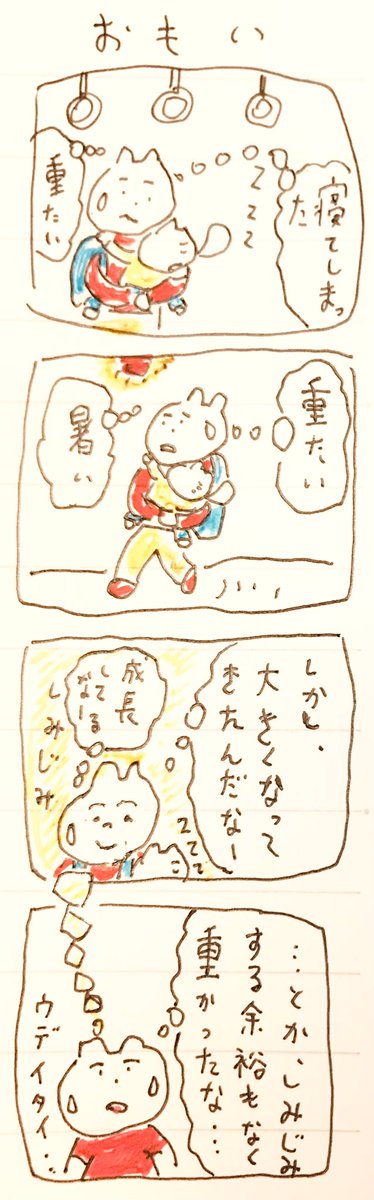 おもい
寝てしまっ
た
zzz
重たい
重たい
暑い
しかし、
大きくなって
きたんだなー
zzz
成長
してる
なー
しみじみ
…とか、しみじみ
する余裕もなく
重かったな…
ウデイタイ…